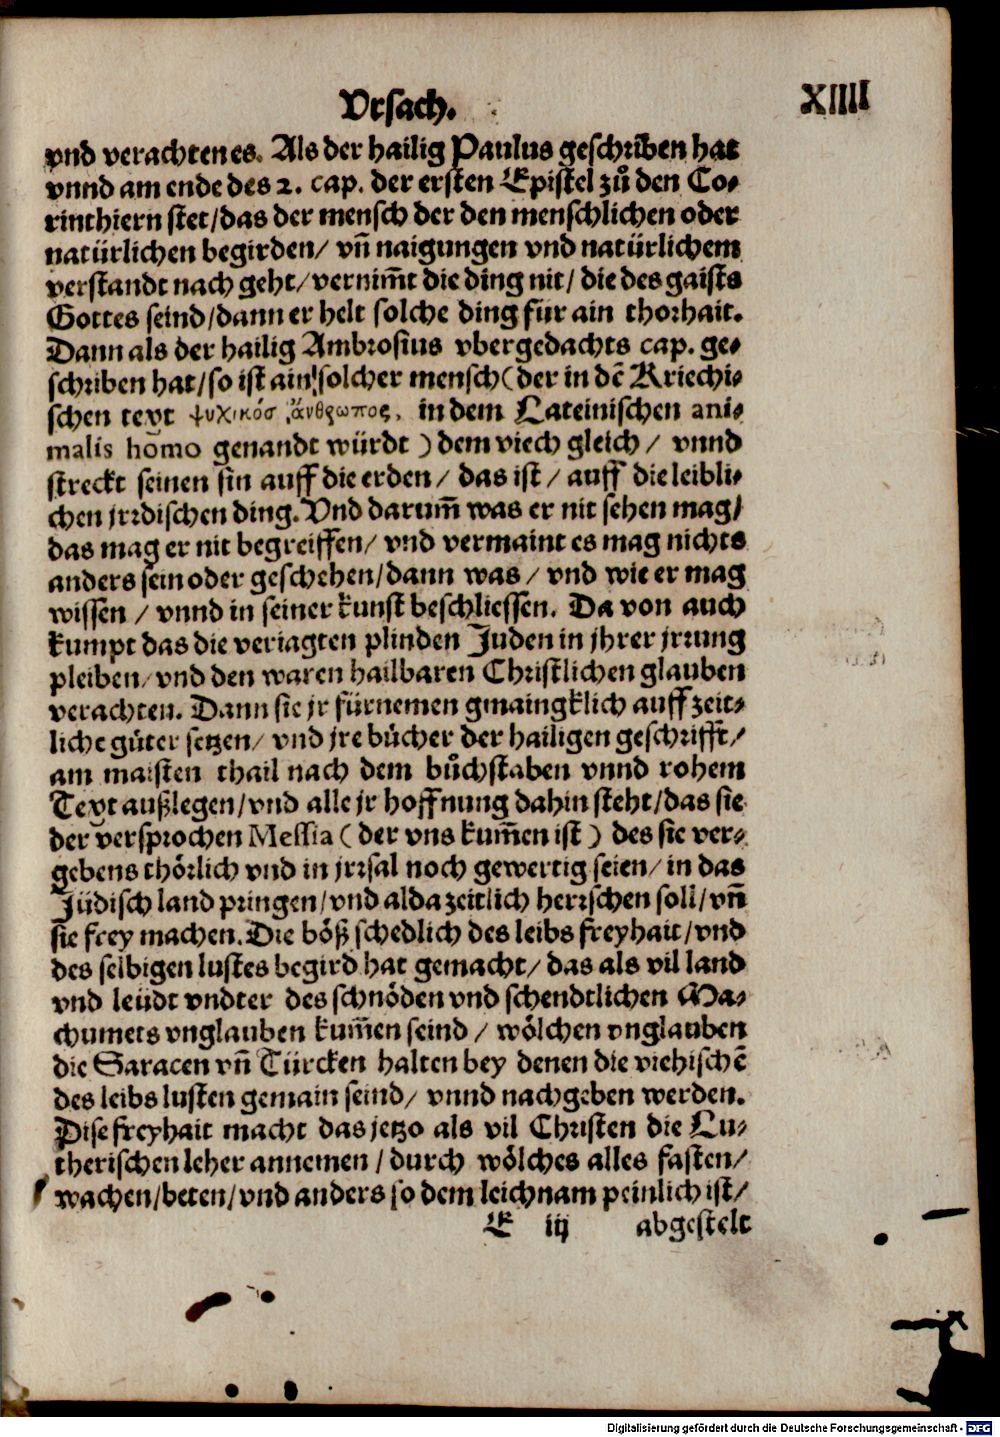 Vrsach.
XIIII
vnd verachten es. Als der hailig Paulus geschriben hat
vnnd am ende des 2. cap. der ersten Epistel zů den Co-
rinthiern stet/das der mensch der den menschlichen oder
natürlichen begirden/ vñ naigungen vnd natürlichem
verstandt nach geht/vernim̃t die ding nit/ die des gaists
Gottes seind/dann er helt solche ding für ain thorhait.
Dann als der hailig Ambrosius vbergedachts cap. ge-
schriben hat/so ist ain solcher mensch(der in dẽ Kriechi-
schen text ψυχικόσ ἄνθρωπος, in dem Lateinischen ani-
malis homo genandt würdt) dem viech gleich/ vnnd
streckt seinen sin auff die erden/ das ist/ auff die leibli-
chen jrrdischen ding. Vnd darum̃ was er nit sehen mag/
das mag er nit begreiffen/ vnd vermaint es mag nichts
anders sein oder geschehen/dann was/ vnd wie er mag
wissen/ vnnd in seiner kunst beschliessen. Da von auch
kumpt das die veriagten plinden Juden in jhrer jrrung
pleiben/vnd den waren hailbaren Christlichen glauben
verachten. Dann sie jr fürnemen gmaingklich auff zeit-
liche gůter setzen/ vnd jre bůcher der hailigen geschrifft/
am maisten thail nach dem bůchstaben vnnd rohem
Text außlegen/vnd alle jr hoffnung dahin steht/das sie
der versprochen Messia (der vns kum̃en ist) des sie ver-
gebens thörlich vnd in jrrsal noch gewertig seien/ in das
Jüdisch land pringen/vnd alda zeitlich herrschen soll/vñ
sie frey machen. Die böß schedlich des leibs freyhait/vnd
des selbigen lustes begird hat gemacht/ das als vil land
vnd leüdt vndter des schnöden vnd schendtlichen Ma-
chumets vnglauben kum̃en seind/ wölchen vnglauben
die Saracen vñ Türcken halten bey denen die viehischẽ
des leibs lusten gemain seind/ vnnd nachgeben werden.
Dise freyhait macht das jetzo als vil Christen die Lu-
therischen leher annemen/durch wölches alles fasten/
wachen/beten/vnd anders so dem leichnam peinlich ist/
E iij abgestelt
Digitalisierung gefördert durch die Deutsche Forschungsgemeinschaft - DFG